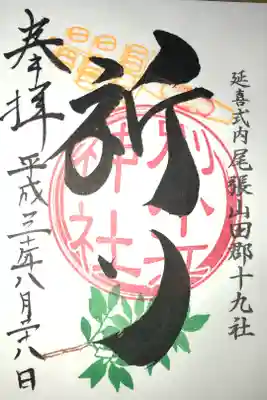 延喜式内 尾張山田郡十九社
祈り
別小江
神社
奉拝 平成三十年八月二十八日